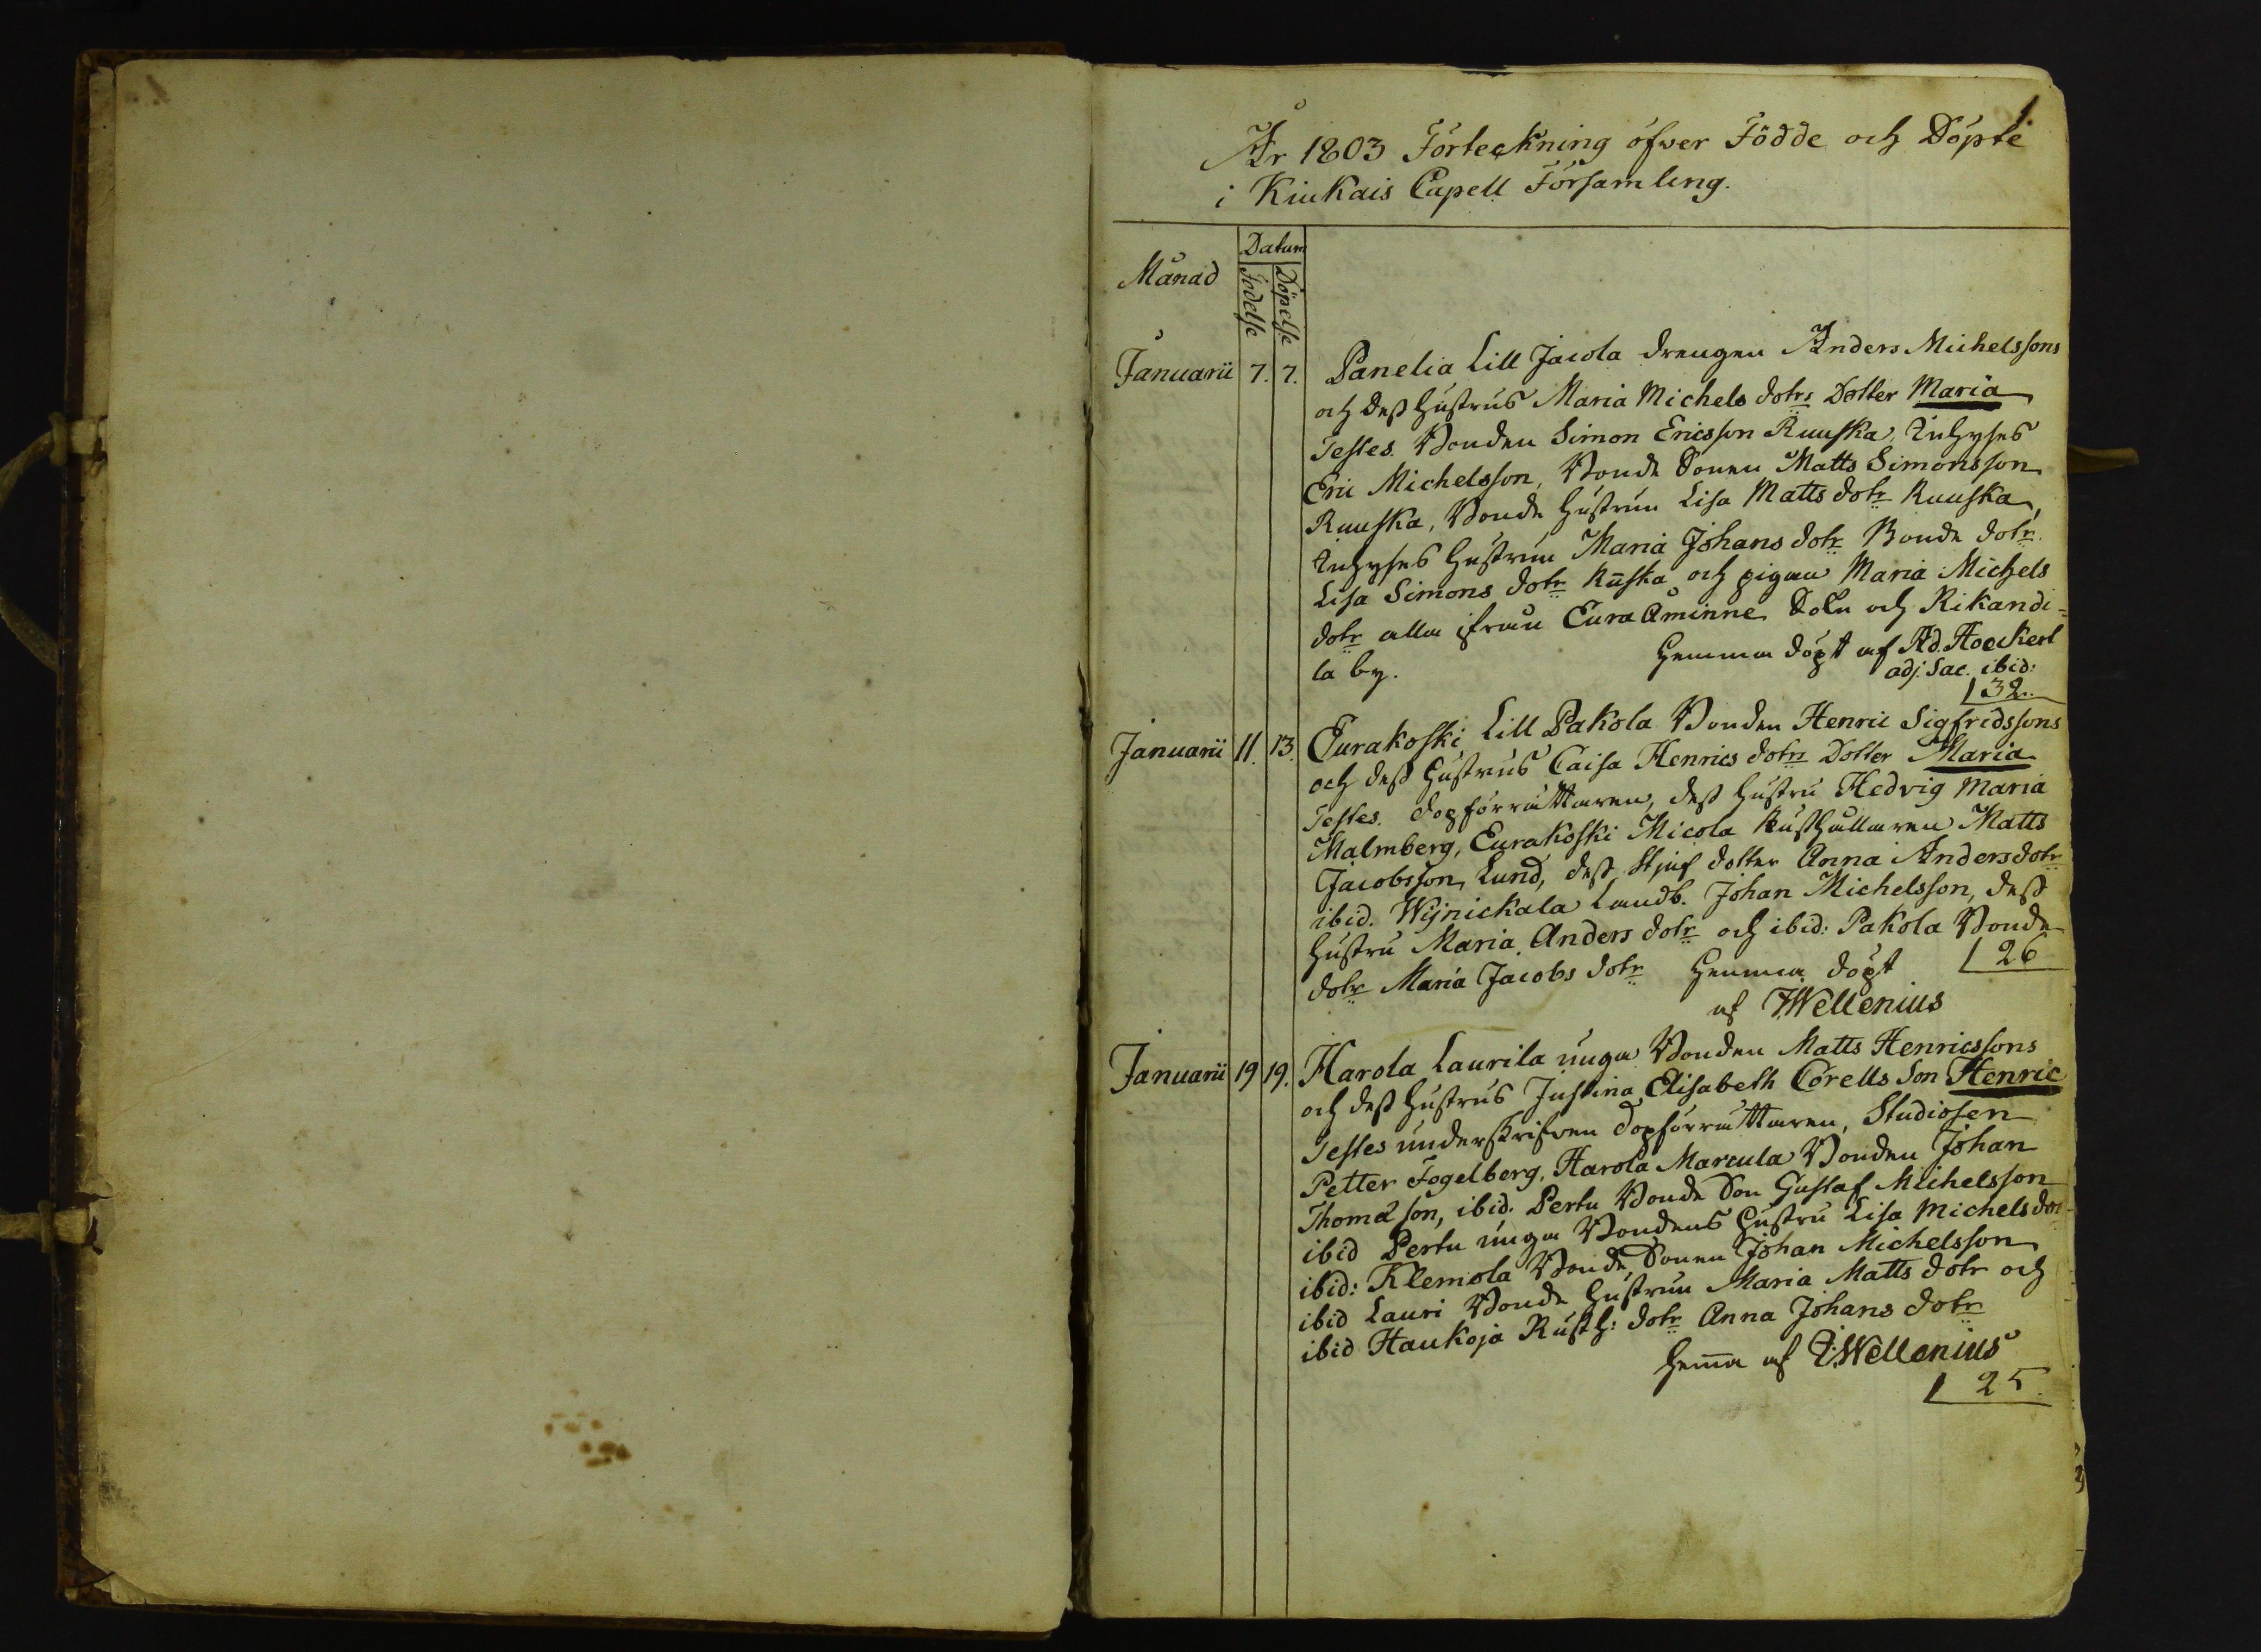 1.
År 1803 Förteckning öfwer Födde och Döpte
i Kiukais Capell Församling.
Månad
Datum
Födelse
Döpelse
Januarii 7. 7. Panelia Lill Jacola drengen Anders Michelssons
och dess hustrus Maria Michels dotrs Dotter Maria
Testes. Bonden Simon Ericsson Ruuska, Inhyses
Eric Michelsson, Bonde Sonen Matts Simonsson
Ruuska, Bonde hustrun Lisa Matts dotr Ruuska,
Inhyses hustrun Maria Johans dotr Bonde dotr
Lisa Simons dotr Ruska och pigan Maria Michels
dotr alla ifrån Eura Åminne Sokn och Rikandi-
la by.
Hemma döpt af Ad. Hoeckert
adj. Sac. ibid:
32.
Januarii 11. 13. Eurakoski Lill Pakola Bonden Henric Sigfridssons
och dess hustrus Caisa Henrics dotrs Dotter Maria
Testes. dopförrättaren, dess hustru Hedvig Maria
Malmberg, Eurakoski Micola Rusthållaren Matts
Jacobsson Lund, dess Stjuf dotter Anna Anders dotr
ibid. Wijnickala Landb. Johan Michelsson, dess
hustru Maria Anders dotr och ibid: Pakola Bonde
dotr Maria Jacobs dotr Hemma döpt
26
af I. Wellenius
Januarii 19 19. Harola Laurila unga Bonden Matts Henricssons
och dess hustrus Justina Elisabeth Corells Son Henric
Testes underskrifven dopförrättaren, Studiosen
Petter Fogelberg, Harola Marcula Bonden Johan
Thomasson, ibid. Pertu Bonde Son Gustaf Michelsson
ibid Pertu unga Bondens hustru Lisa Michels dotr
ibid: Klemola Bonde Sonen Johan Michelsson
ibid Lauri Bonde hustrun Maria Matts dotr och
ibid Haukoja Rusth: dotr Anna Johans dotr
Hem̅a af I. Wellenius
25.